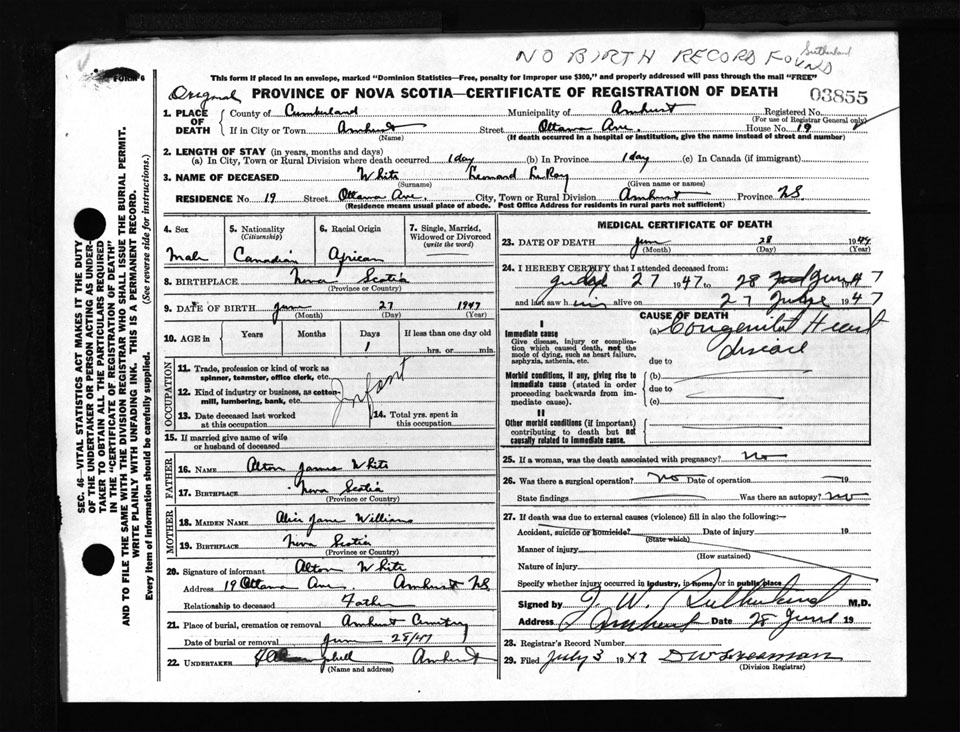 NO BIRTH RECORD FOUND
Sutherland
FORM 6
This form if placed in an envelope, marked "Dominion Statistics—Free, penalty for improper use $300," and properly addressed will pass through the mail "FREE"
Original
PROVINCE OF NOVA SCOTIA—CERTIFICATE OF REGISTRATION OF DEATH
03855
1. PLACE OF DEATH
County of Cumberland Municipality of Amherst Registered No.
(For use of Registrar General only)
If in City or Town Amherst Street Ottawa Ave. House No. 19
(Name) (If death occurred in a hospital or institution, give the name instead of street and number)
2. LENGTH OF STAY (in years, months and days)
(a) In City, Town or Rural Division where death occurred 1 day (b) In Province 1 day (c) In Canada (if immigrant)
3. NAME OF DECEASED White Leonard LeRoy
(Surname) (Given name or names)
RESIDENCE No. 19 Street Ottawa Ave. City, Town or Rural Division Amherst Province N.S.
(Residence means usual place of abode. Post Office Address for residents in rural parts not sufficient)
4. Sex
Male
5. Nationality
(Citizenship)
Canadian
6. Racial Origin
African
7. Single, Married, Widowed or Divorced
(write the word)
8. BIRTHPLACE Nova Scotia
(Province or Country)
9. DATE OF BIRTH June 27 1947
(Month) (Day) (Year)
10. AGE in Years Months Days If less than one day old
1 hrs. or min.
OCCUPATION
11. Trade, profession or kind of work as spinner, teamster, office clerk, etc.
12. Kind of industry or business, as cotton-mill, lumbering, bank, etc.
Infant
13. Date deceased last worked at this occupation
14. Total yrs. spent in this occupation
15. If married give name of wife or husband of deceased
FATHER
16. NAME Alton James White
17. BIRTHPLACE Nova Scotia
(Province or Country)
MOTHER
18. MAIDEN NAME Alice Jane Williams
19. BIRTHPLACE Nova Scotia
(Province or Country)
20. Signature of informant Alton White
Address 19 Ottawa Ave. Amherst N.S.
Relationship to deceased Father
21. Place of burial, cremation or removal Amherst Cemetery
Date of burial or removal June 28/47
22. UNDERTAKER Amherst
(Name and address)
MEDICAL CERTIFICATE OF DEATH
23. DATE OF DEATH June 28 1947
(Month) (Day) (Year)
24. I HEREBY CERTIFY that I attended deceased from:
27 1947 28 June 47
and last saw him alive on 27 1947
CAUSE OF DEATH
I
Immediate cause
Give disease, injury or complication which caused death, not the mode of dying, such as heart failure, asphyxia, asthenia, etc.
(a) Congenital Heart disease
due to
Morbid conditions, if any, giving rise to immediate cause (stated in order proceeding backwards from immediate cause).
(b)
due to
(c)
II
Other morbid conditions (if important) contributing to death but not causally related to immediate cause.
25. If a woman, was the death associated with pregnancy? No
26. Was there a surgical operation? No Date of operation 19
State findings Was there an autopsy? No
27. If death was due to external causes (violence) fill in also the following:—
Accident, suicide or homicide? Date of injury 19
(State which)
Manner of injury
(How sustained)
Nature of injury
Specify whether injury occurred in industry, in home, or in public place
Signed by J. W. Sutherland M.D.
Address Amherst Date 28 June 19
28. Registrar's Record Number
29. Filed July 3 1947
(Division Registrar)
SEC. 46—VITAL STATISTICS ACT MAKES IT THE DUTY
OF THE UNDERTAKER OR PERSON ACTING AS UNDER-
TAKER TO OBTAIN ALL THE PARTICULARS REQUIRED
IN THE "CERTIFICATE OF REGISTRATION OF DEATH"
AND TO FILE THE SAME WITH THE DIVISION REGISTRAR WHO SHALL ISSUE THE BURIAL PERMIT.
WRITE PLAINLY WITH UNFADING INK. THIS IS A PERMANENT RECORD.
Every item of information should be carefully supplied. (See reverse side for instructions.)